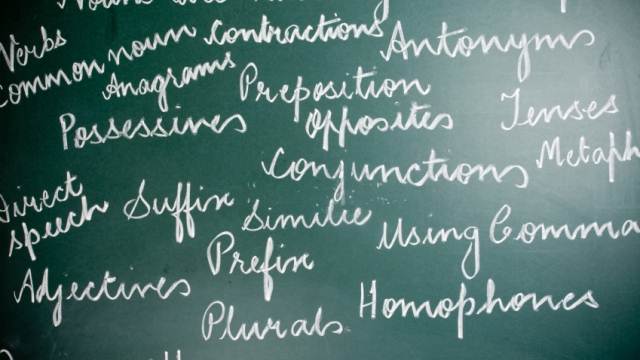 Verbs
Common noun
Contractions
Antonyms
Anagrams
Preposition
Possessives
Opposites
Tenses
Conjunctions
Metaph
Direct
speech
Suffix
Similie
Using Comma
Prefix
Adjectives
Plurals
Homophones